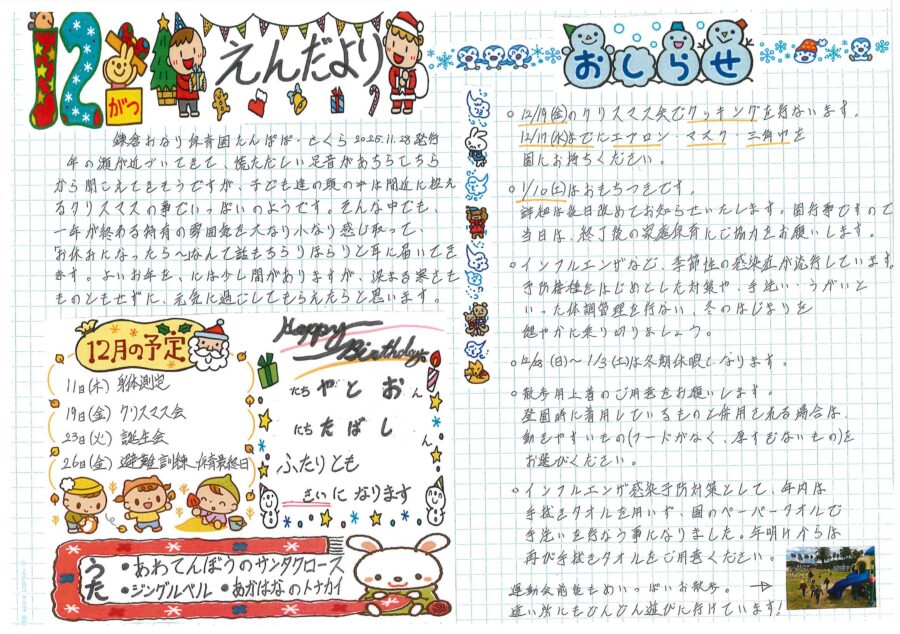 12がつ
えんだより
鎌倉おなり保育園たんぽぽ・さくら 2025.11.28発行
年の瀬が近づいてきて、慌ただしい足音があちらこちら
から聞こえてきそうですが、子ども達の頭の中は間近に控え
るクリスマスの事でいっぱいのようです。そんな中でも、
一年が終わる特有の雰囲気を大なり小なり感じ取って、
「お休みになったら〜」なんて話もちらりほらりと耳に届いてき
ます。よいお年を、には少し間がありますが、深まる寒さを
ものともせずに、元気に過ごしてもらえたらと思います。
12月の予定
11日(木) 身体測定
19日(金) クリスマス会
23日(火) 誕生会
26日(金) 避難訓練、保育最終日
Happy
Birthday
たち や と お ん
にち た ば し ん
ふたりとも
さいになります
うた
・あわてんぼうのサンタクロース
・ジングルベル ・あかはなのトナカイ
おしらせ
○ 12/19(金)のクリスマス会でクッキングを行ないます。
12/17(水)までにエプロン・マスク・三角巾を
園にお持ちください。
○ 1/10(土)はおもちつきです。
詳細は後日改めてお知らせいたします。園行事ですので
当日は、終了後の家庭保育にご協力をお願いします。
○ インフルエンザなど、季節性の感染症が流行しています。
予防接種をはじめとした対策や、手洗い・うがいと
いった体調管理を行ない、冬のはじまりを
健やかに乗り切りましょう。
○ 12/28(日)〜1/3(土)は冬期休暇になります。
○ 散歩用上着のご用意をお願いします。
登園時に着用しているものと併用される場合は、
動きやすいもの(フードがなく、厚すぎないもの)を
お選びください。
○ インフルエンザ感染予防対策として、年内は
手拭きタオルを用いず、園のペーパータオルで
手洗いを行なう事になりました。年明けからは
再び手拭きタオルをご用意ください。
運動会前後もめいっぱいお散歩。→
遠い所にもぴんぴん遊びに行けています!